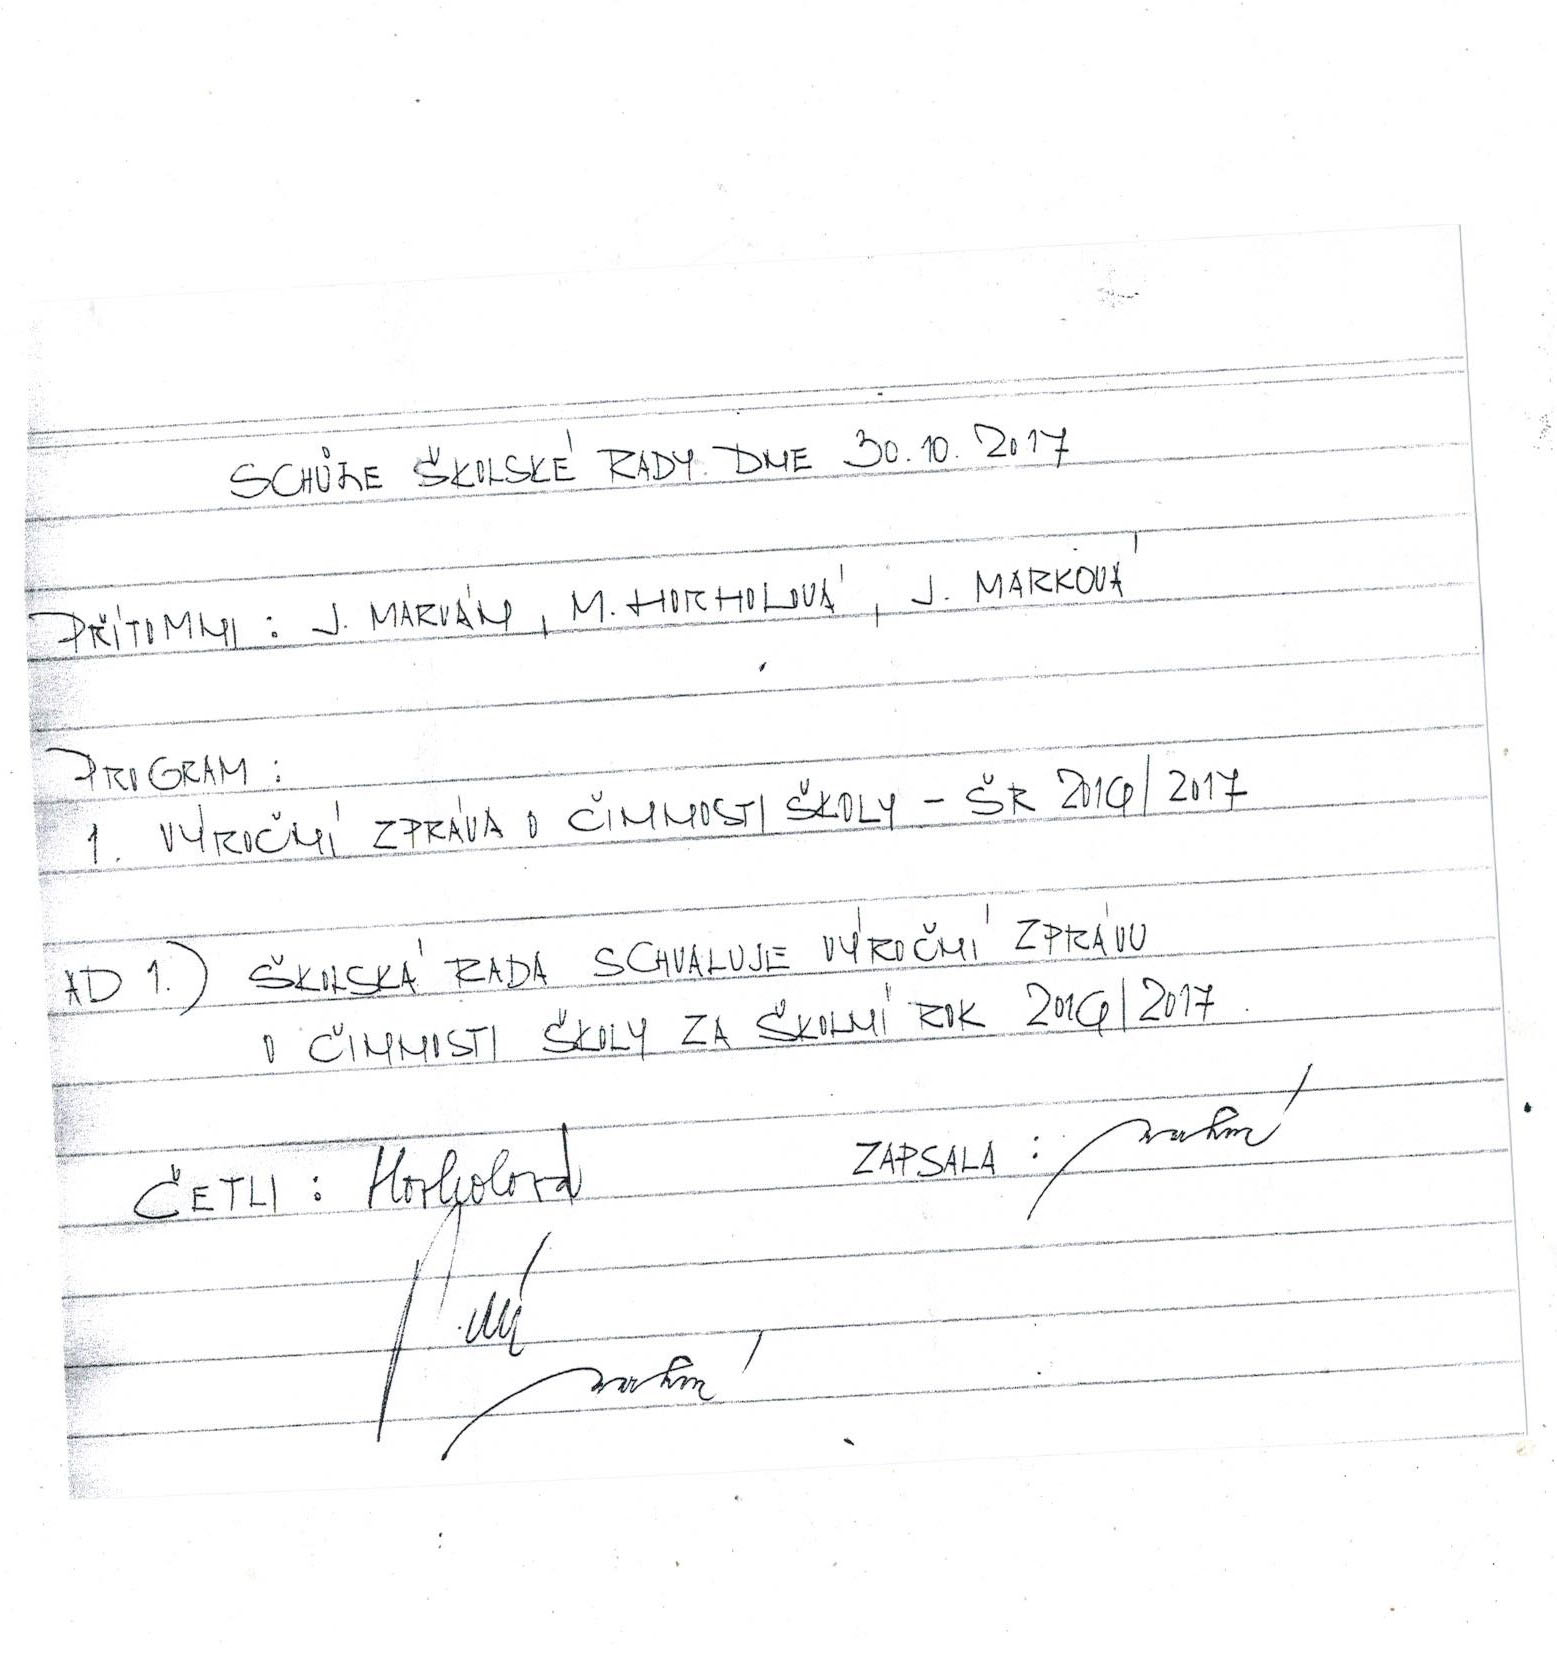 SCHŮZE ŠKOLSKÉ RADY DNE 30.10.2017
PŘÍTOMNI : J. MARVÁN, M. HORHOLOVÁ, J. MARKOVÁ
PROGRAM :
1. VÝROČNÍ ZPRÁVA O ČINNOSTI ŠKOLY – ŠR 2016/2017
AD 1.) ŠKOLSKÁ RADA SCHVALUJE VÝROČNÍ ZPRÁVU
O ČINNOSTI ŠKOLY ZA ŠKOLNÍ ROK 2016/2017.
ČETLI : Horholová ZAPSALA :